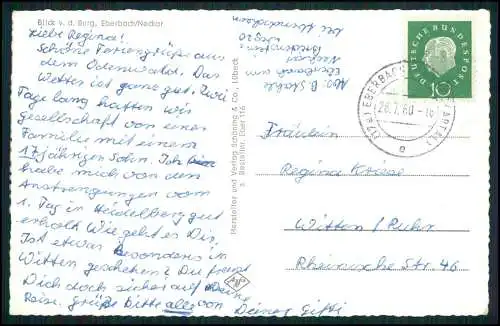 Blick v. d. Burg, Eberbach/Neckar
Liebe Regina!
Schöne Feriengrüße aus
dem Odenwald. Das
Wetter ist ganz gut. Zwei
Tage lang hatten wir
Gesellschaft von einer
Familie mit einem
17jährigen Sohn. Ich
habe mich von den
Anstrengungen vom
1. Tag in Heidelberg gut
erholt. Wie geht es Dir.
Ist etwas besonderes in
Witten geschehen? Du freust
Dich doch sicher auf Deine
Reise. Grüße bitte alle von
Deiner Gitti
Abs. B.
Eberbach am
Neckar
Hersteller und Verlag Schöning & Co., Lübeck
Bestellnr. Eber 116
DEUTSCHE BUNDESPOST
10
(17a) EBERBACH
26.7.60-16
e
Fräulein
Regina Kriese
Witten / Ruhr
Rheinische Str. 46